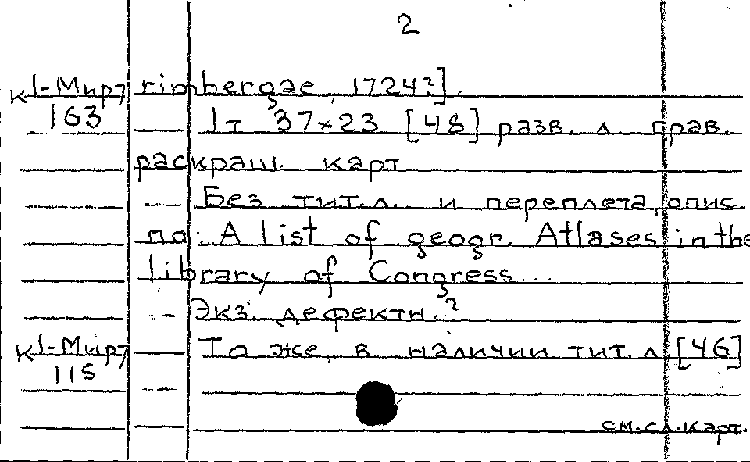 2
К1-Мир7 rimbergae, 1724?].
163 1т 37×23 [48] разв. л. грав.
раскраш. карт
Без тит.л. и переплета, опис.
по: A list of geogr. Atlases in the
library of Congress...
Экз. дефектн.?
К1-Мир7 То же, в наличии тит. л [46]
115
см.сл.карт.